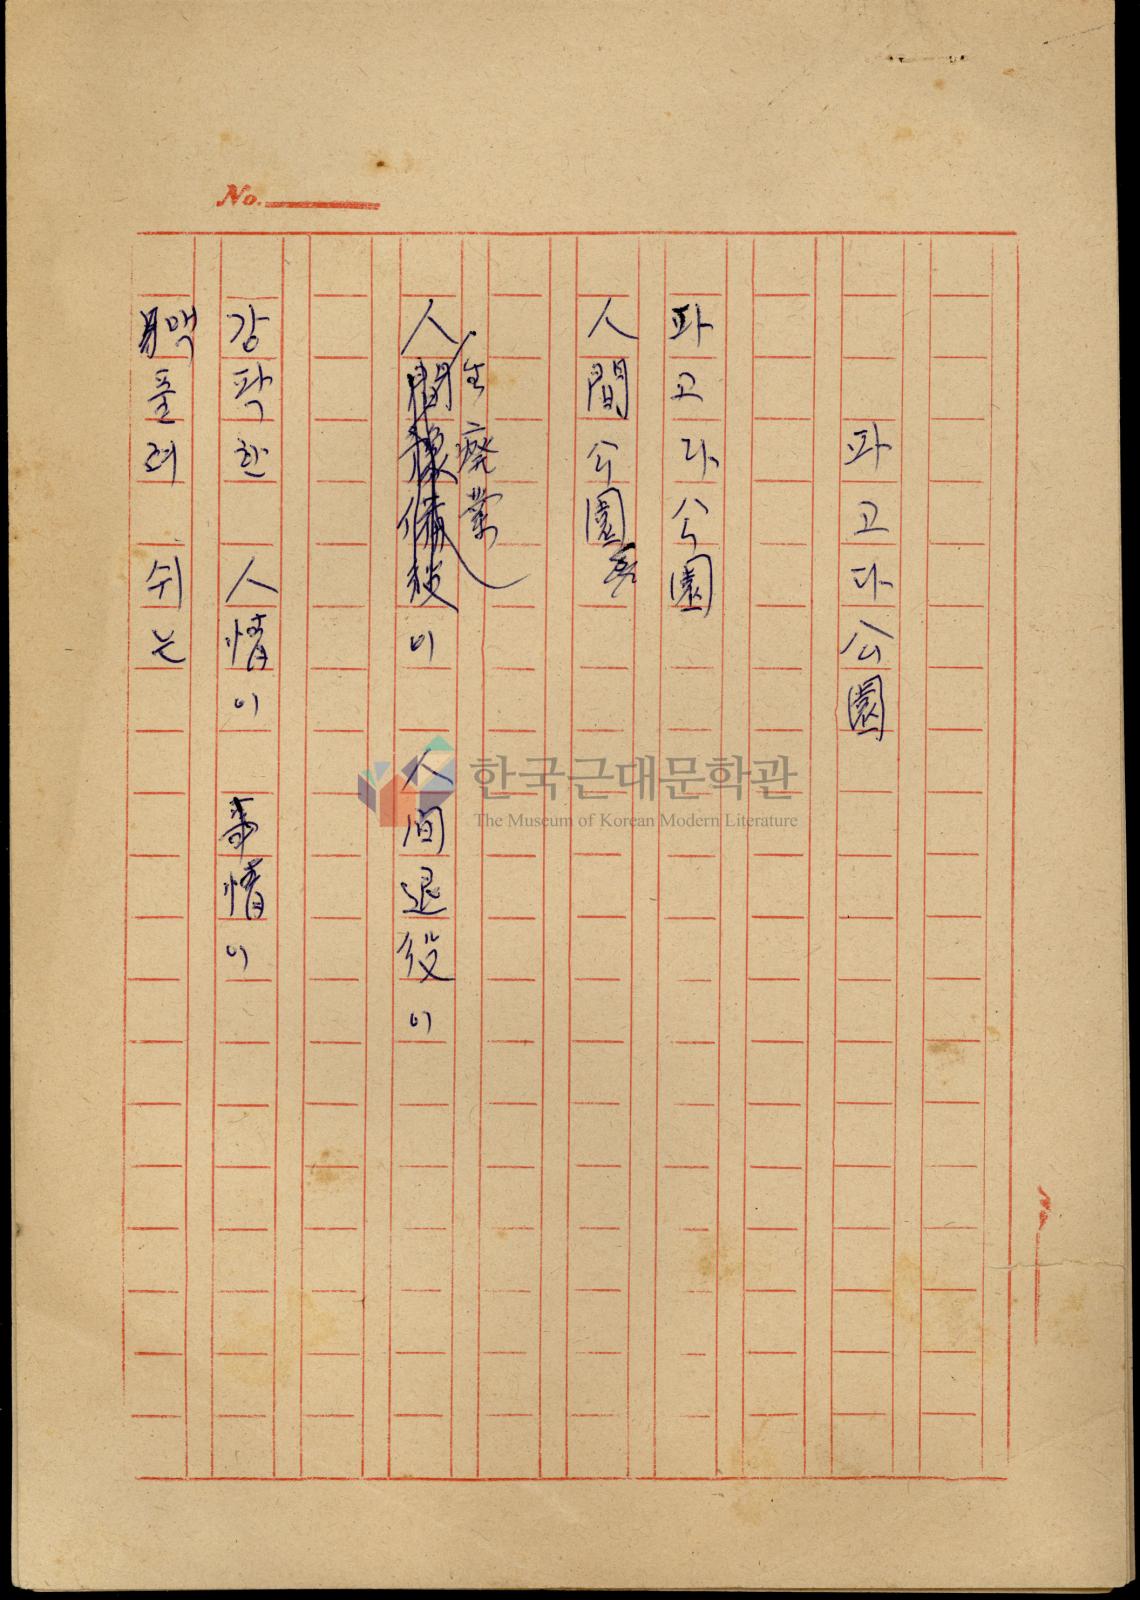 No.
파고다公園
파고다公園
人間公園
人生廢業이 人間退役이
강팍한 人情이 事情이
맥풀려 쉬는
한국근대문학관
The Museum of Korean Modern Literature
No.